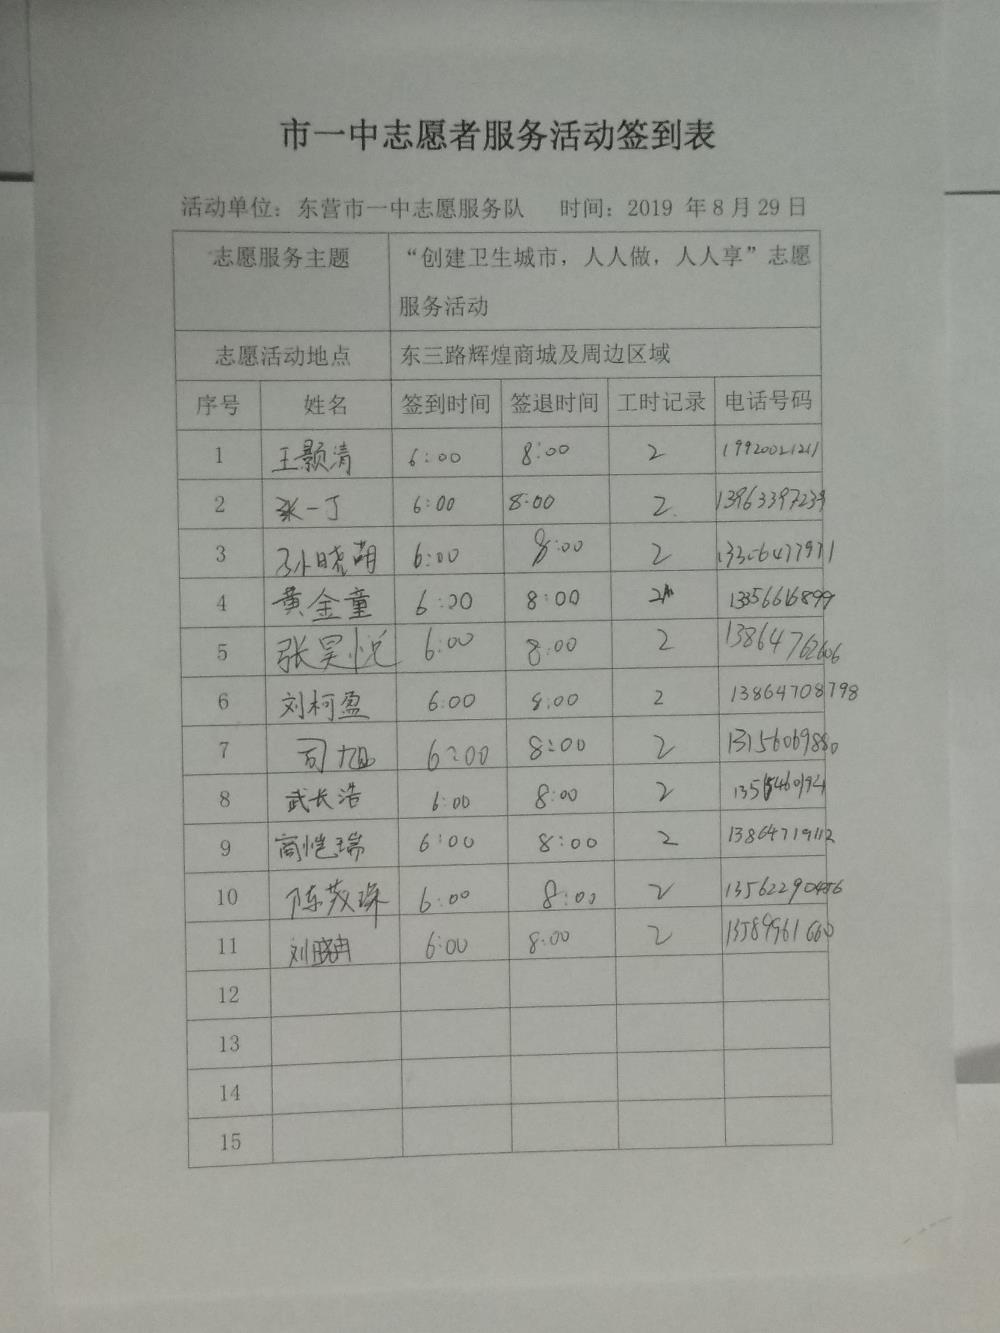 市一中志愿者服务活动签到表
活动单位：东营市一中志愿服务队 时间：2019 年 8 月 29 日
志愿服务主题 “创建卫生城市，人人做，人人享”志愿
服务活动
志愿活动地点 东三路辉煌商城及周边区域
序号 姓名 签到时间 签退时间 工时记录 电话号码
1 王颢清 6:00 8:00 2 19920021211
2 张一丁 6:00 8:00 2 13963397239
3 孙晓萌 6:00 8:00 2 13306477971
4 黄金童 6:00 8:00 2
5 张昊悦 6:00 8:00 2 13864762606
6 刘柯盈 6:00 8:00 2 13864708798
7 司旭 6:00 8:00 2 13156069880
8 武长浩 6:00 8:00 2
9 商恺瑞 6:00 8:00 2 13864719112
10 陈茂琛 6:00 8:00 2 13562290456
11 刘晓冉 6:00 8:00 2 13589961660
12
13
14
15